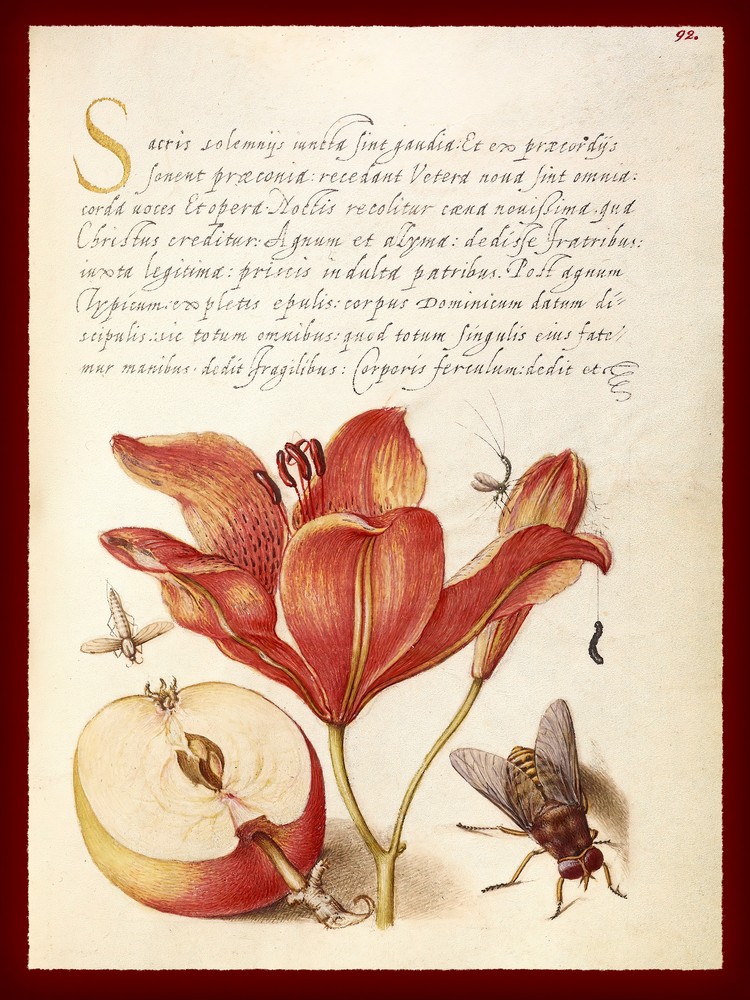 92.
Sacris solemnijs iuncta sint gaudia: Et ex præcordijs
sonent præconia: recedant Vetera noua sint omnia:
corda uoces Et opera. Noctis recolitur cæna nouissima. qua
Christus creditur: Agnum et azyma: dedisse fratribus:
iuxta legitima: priscis indulta patribus. Post agnum
Typicum: expletis epulis: corpus Dominicum datum di=
scipulis: sic totum omnibus: quod totum singulis eius fate/
mur manibus. dedit fragilibus: Corporis ferculum: dedit et